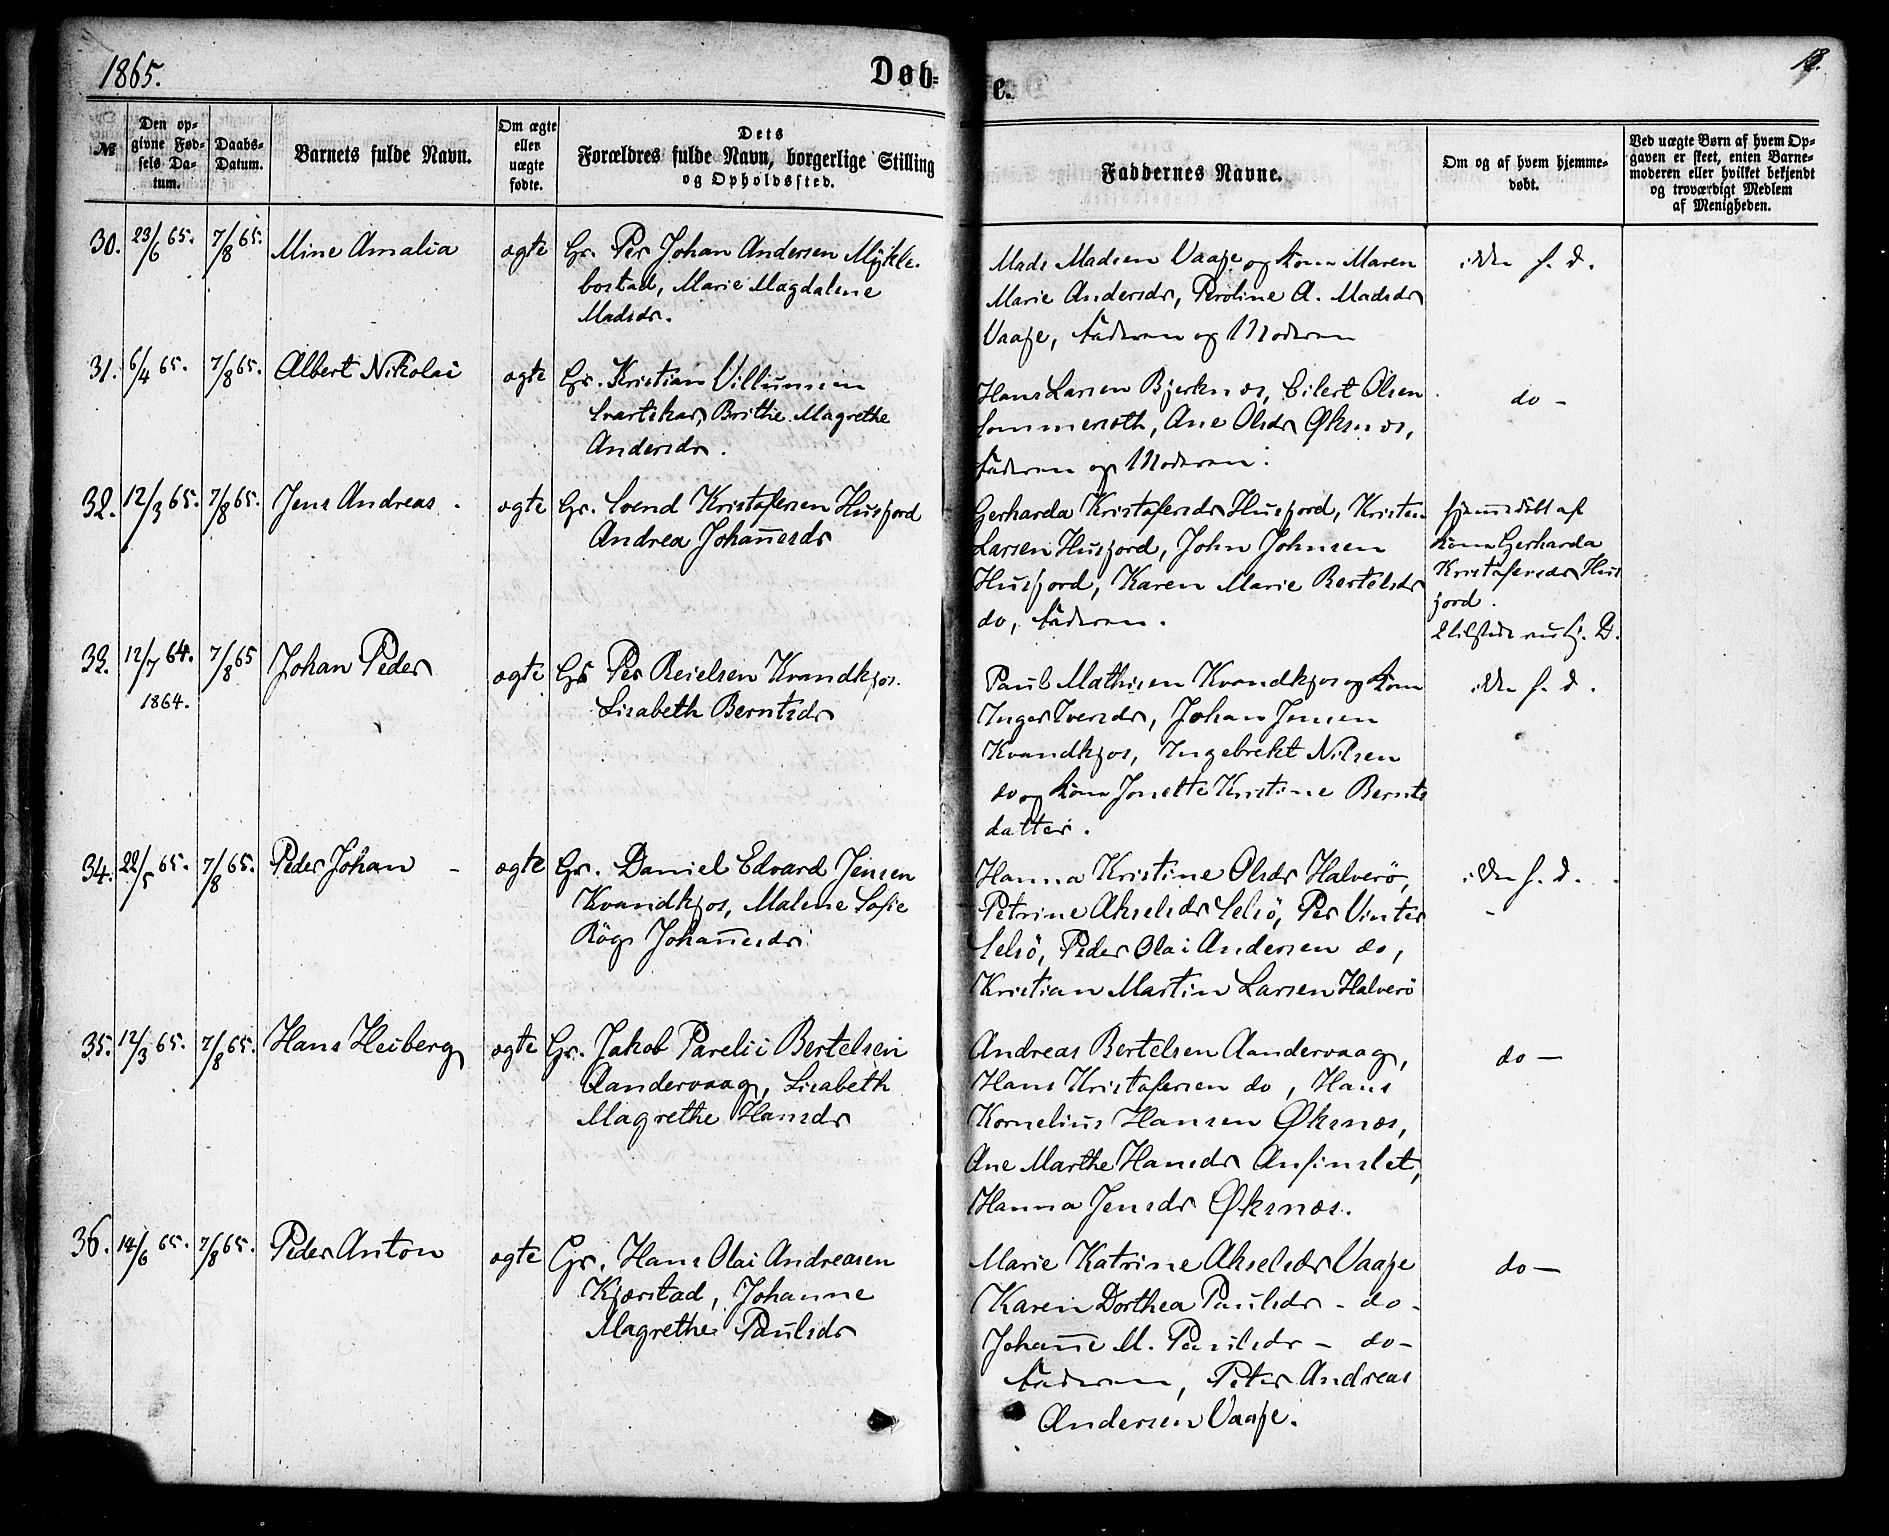 1865.
Døb-
e.
№
Den op-
givne Fød-
sels Da-
tum.
Daabs-
Datum.
Barnets fulde Navn.
Om ægte
eller
uægte
fødte.
Dets
Forældres fulde Navn, borgerlige Stilling
og Opholdssted.
Faddernes Navne.
Om og af hvem hjemme-
døbt.
Ved uægte Børn af hvem Op-
gaven er skeet, enten Barne-
moderen eller hvilket bekjendt
og troværdigt Medlem
af Menigheden.
30. 23/6 65. 7/8 65. Mine Amalia ægte Gr. Per Johan Andersen Mykle-
bostad, Marie Magdalene
Madsdr.
Mads Madsen Vaaje og Kone Maren
Marie Andersdr, Peroline A. Madsdr
Vaaje, Faderen og Moderen
ikke h. d.
31. 6/4 65. 7/8 65. Albert Nikolai ægte Gr. Kristian Villumsen
Svartskar, Brithe Magrethe
Andersdr.
Hans Larsen Bjerknæs, Eilert Olsen
Sommerseth, Ane Olsdr Øksnæs,
Faderen og Moderen.
do -
32. 12/3 65. 7/8 65. Jens Andreas. ægte Gr. Svend Kristofersen Husjord
Andrea Johannesdr
Gerharda Kristofersdr Husjord, Kristen
Larsen Husjord, John Johnsen
Husjord, Karen Marie Bertelsdr
do, Faderen.
hjemmedøbt af
Kone Gerharda
Kristofersdr Hus
jord.
33. 12/7 64. 7/8 65 Johan Peder ægte Gr Per Reielsen Kvandkjos.
1864.
Lisabeth Berntsdr
Paul Mathisen Kvandkjos og Kone
Inger Iversdr, Johan Jensen
Kvandkjos, Ingebrekt Nilsen
do og Kone Jonette Kristine Bernts
datter.
ikke h. d.
34. 22/5 65. 7/8 65. Peder Johan - ægte Gr. Daniel Edvard Jensen
Kvandkjos, Malene Sofie
Røgs Johannesdr
Hanna Kristine Olsdr Halverø,
Petrine Akselsdr Selsø, Per Vinter
Selsø, Peder Olai Andersen do,
Kristian Martin Larsen Halverø
ikke h. d.
35. 12/3 65. 7/8 65. Hans Heiberg ægte Gr. Jakob Parelii Bertelsen
Aandervaag, Lisabeth
Magrethe Hansdr
Andreas Bertelsen Aandervaag,
Hans Kristofersen do, Hans
Kornelius Hansen Øksnæs,
Ane Marthe Hansdr Anfinslet,
Hanna Jensdr Øksnæs.
do -
36. 14/6 65. 7/8 65. Peder Anton ægte Gr. Hans Olai Andreasen
Kjørstad, Johanne
Magrethe Paulsdr
Marie Katrine Akselsdr Vaaje
Karen Dorthea Paulsdr - do -
Johanne M. Paulsdr - do -
Faderen, Peter Andreas
Andersen Vaaje.
do -